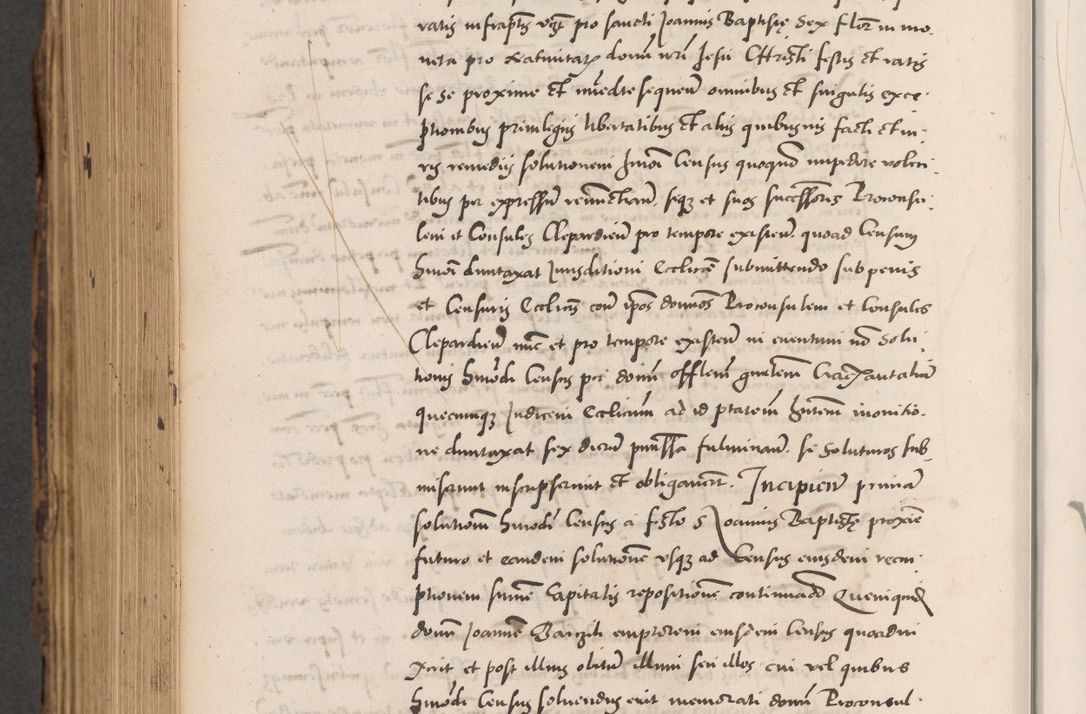 ratis infrapts vzt pro sancti Joannis Baptistę Sex Flor in mo
neta pro Nativitatz domi nri Jesu Christi festis Et ratis
se se proxime Et imedte sequen omnibus Et singulis exce
ptionibus privilegiis libertatibus Et aliis quibusvis facti Et iu
ris remediis solutionem hmoi Census quoquo impedire volen
tibus per expressu renuntian seqz et suos successores Proconsu
lem et Consules Clepardien pro tempore existen quoad Censum
hmoi duntaxat Jurisditioni Ecclicę submittendo sub penis
et Censuris Ecclicis coni ipos dominos Proconsulem et Consules
Clepardien nunc et pro tempore existen in eventum no Solu
tionis hmodi Census per domi offlem gnalem Crac autatum
quecunqz Judicem Ecclicum ad id ptatem hntem monitio
ne duntaxat sex dierum pmissa fulminan se Soluturos sub
miserunt inscripserunt Et obligaverunt Incipien primam
solutionem hmodi Census a festo S Joannis Baptistę proxime
futuro et eandem solutione usqz ad Census eiusdem reem
ptionem sume Capitalis repositione continuando Quemquid
domi Joannem emptorem eiusdem Census quoad
vixerit et post illius obitum illum seu illos cui vel quibus
hmodi Census solvendus erit memorati domi Proconsul